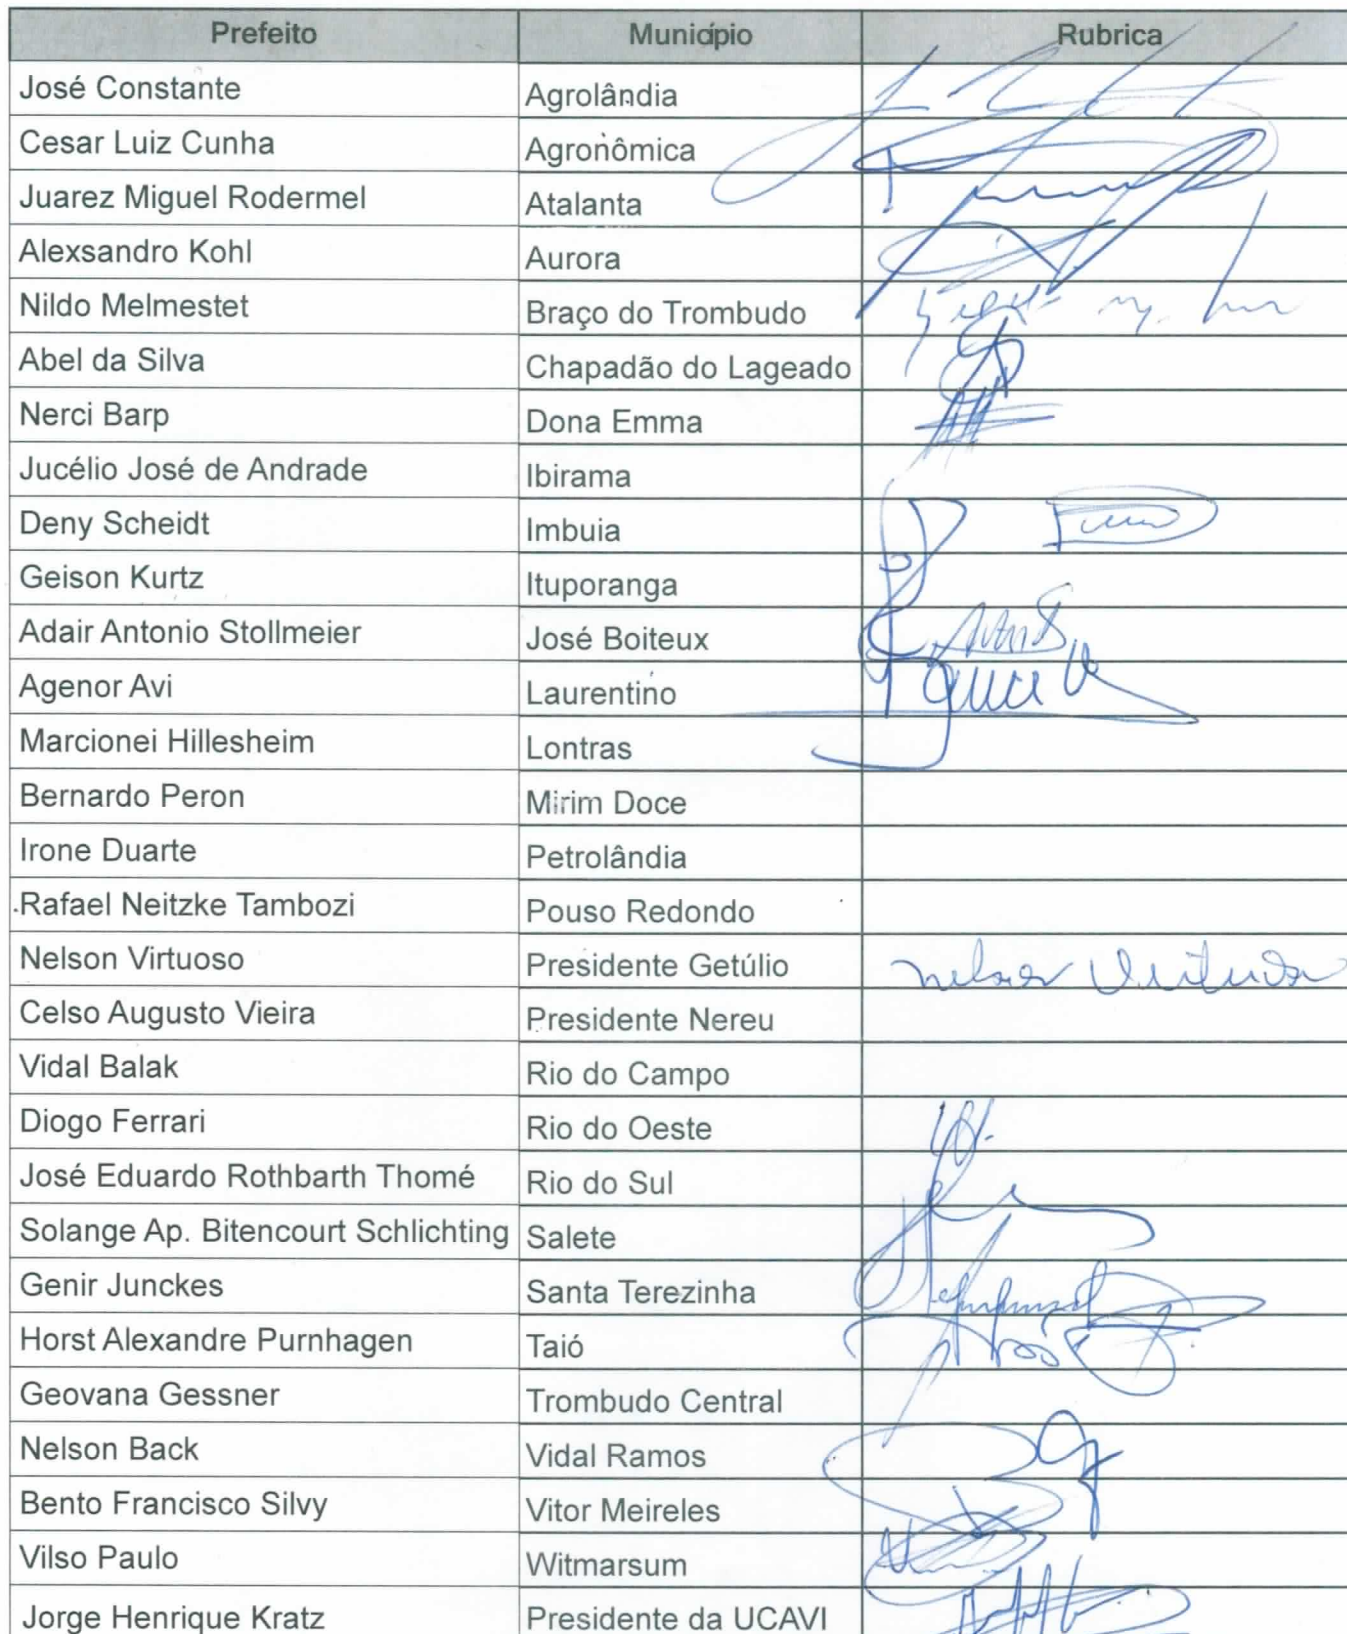 Prefeito Município Rubrica
José Constante Agrolândia
Cesar Luiz Cunha Agronômica
Juarez Miguel Rodermel Atalanta
Alexsandro Kohl Aurora
Nildo Melmestet Braço do Trombudo
Abel da Silva Chapadão do Lageado
Nerci Barp Dona Emma
Jucélio José de Andrade Ibirama
Deny Scheidt Imbuia
Geison Kurtz Ituporanga
Adair Antonio Stollmeier José Boiteux
Agenor Avi Laurentino
Marcionei Hillesheim Lontras
Bernardo Peron Mirim Doce
Irone Duarte Petrolândia
Rafael Neitzke Tambozi Pouso Redondo
Nelson Virtuoso Presidente Getúlio Nelson Virtuoso
Celso Augusto Vieira Presidente Nereu
Vidal Balak Rio do Campo
Diogo Ferrari Rio do Oeste
José Eduardo Rothbarth Thomé Rio do Sul
Solange Ap. Bitencourt Schlichting Salete
Genir Junckes Santa Terezinha
Horst Alexandre Purnhagen Taió
Geovana Gessner Trombudo Central
Nelson Back Vidal Ramos
Bento Francisco Silvy Vitor Meireles
Vilso Paulo Witmarsum
Jorge Henrique Kratz Presidente da UCAVI